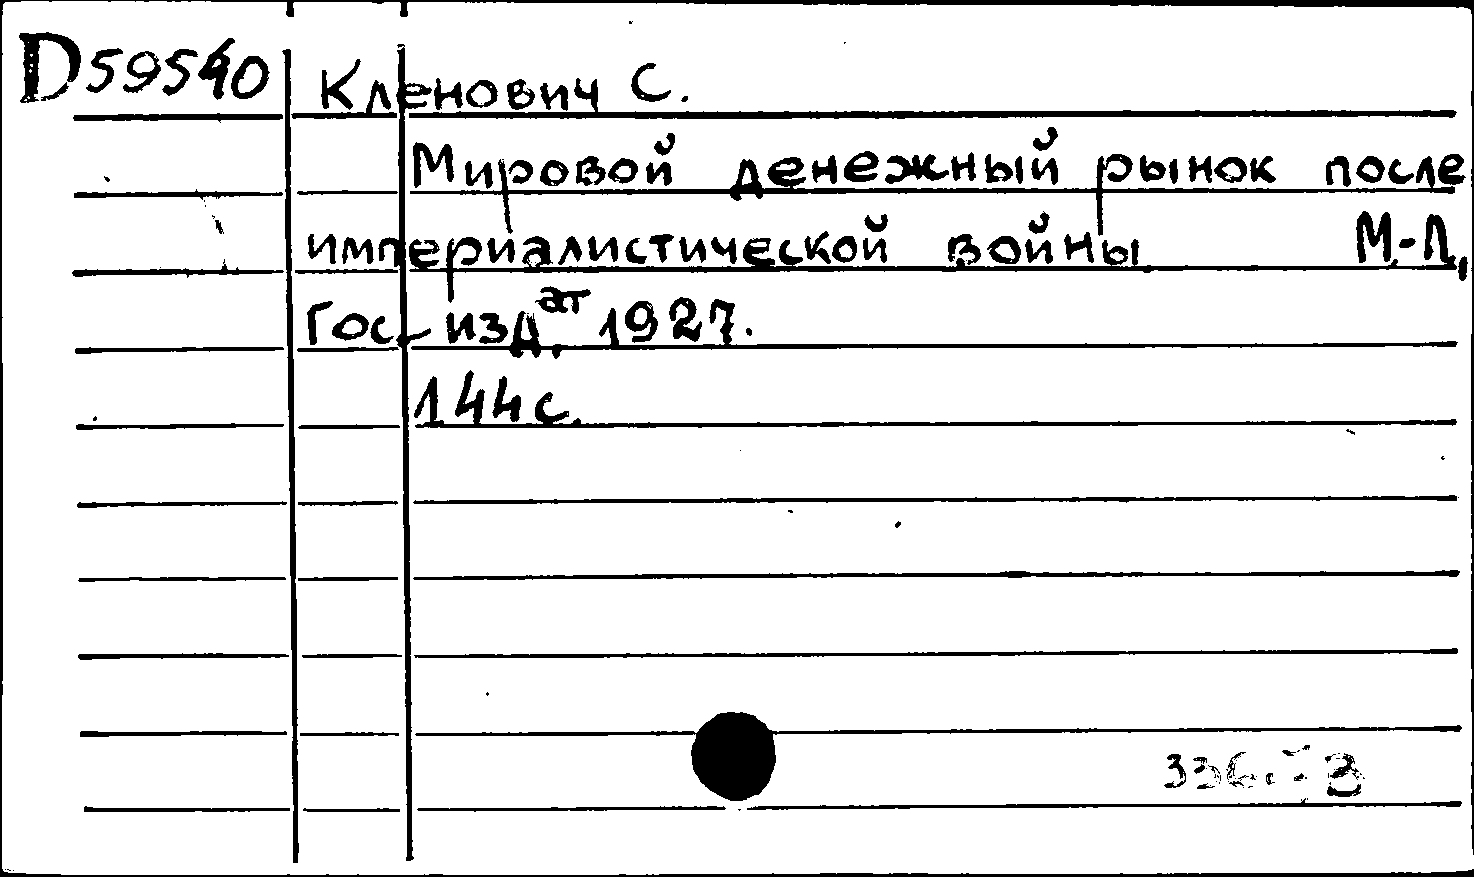 D59540 Кленович С.
Мировой денежный рынок после
империалистической войны М.-Л.,
Гос-издат. 1927.
144 с.